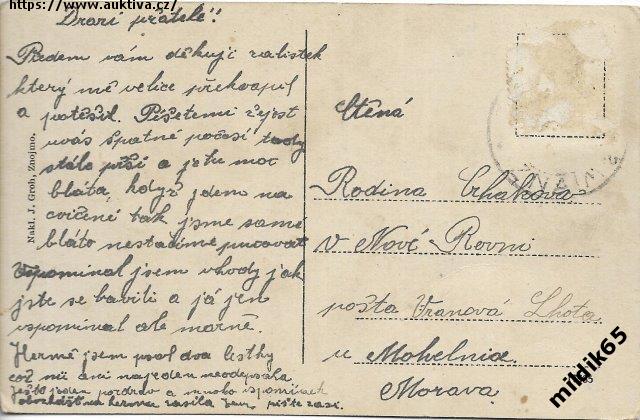 https://www.auktiva.cz/
Drazí přátelé!!
Předem vám děkuji za lístek
který mě velice překvapil
a potěšil. Píšetemi že jest
uvás špatné počasí tady
stálo prší a je tu moc
bláta, když jdem na
cvičené tak jsme samé
bláto nestačíme pucovat
Vzpomínal jsem vhody jak
jste se bavili a já jen
vzpomínal ale marně.
Hermě jsem psal dva lístky
což mi ani najeden neodepsala
Ještě jeden pozdrav a mnoho vzpomínek
zasílá Jan pište zasi.
Nakl. J. Grob, Znojmo.
Ctěná
Rodina Crhákova
v Nové Rovni
pošta Vranová Lhota
u Mohelnice
Morava
mildik65